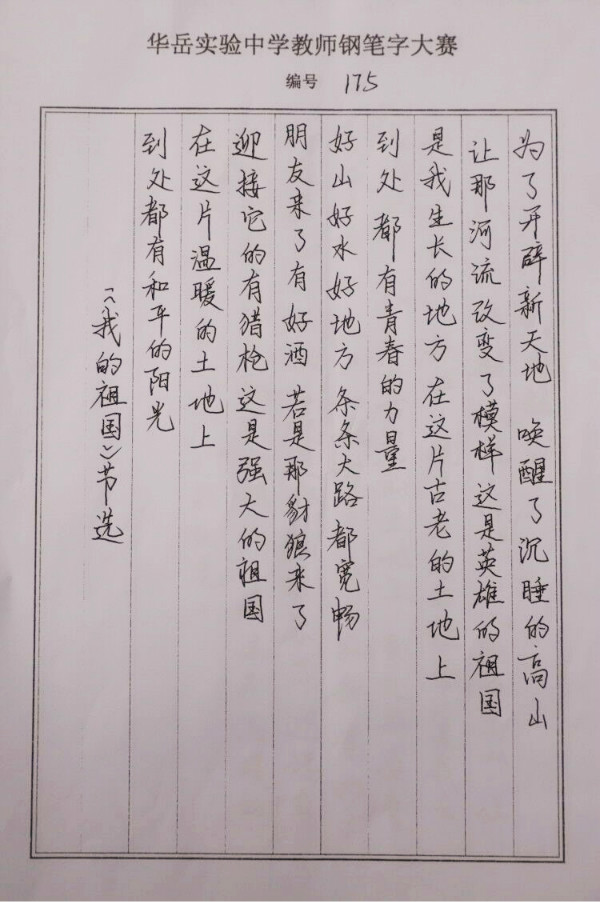 华岳实验中学教师钢笔字大赛
编号 175
为了开辟新天地 唤醒了沉睡的高山
让那河流改变了模样 这是英雄的祖国
是我生长的地方 在这片古老的土地上
到处都有青春的力量
好山好水好地方 条条大路都宽畅
朋友来了有好酒 若是那豺狼来了
迎接它的有猎枪 这是强大的祖国
在这片温暖的土地上
到处都有和平的阳光
《我的祖国》节选